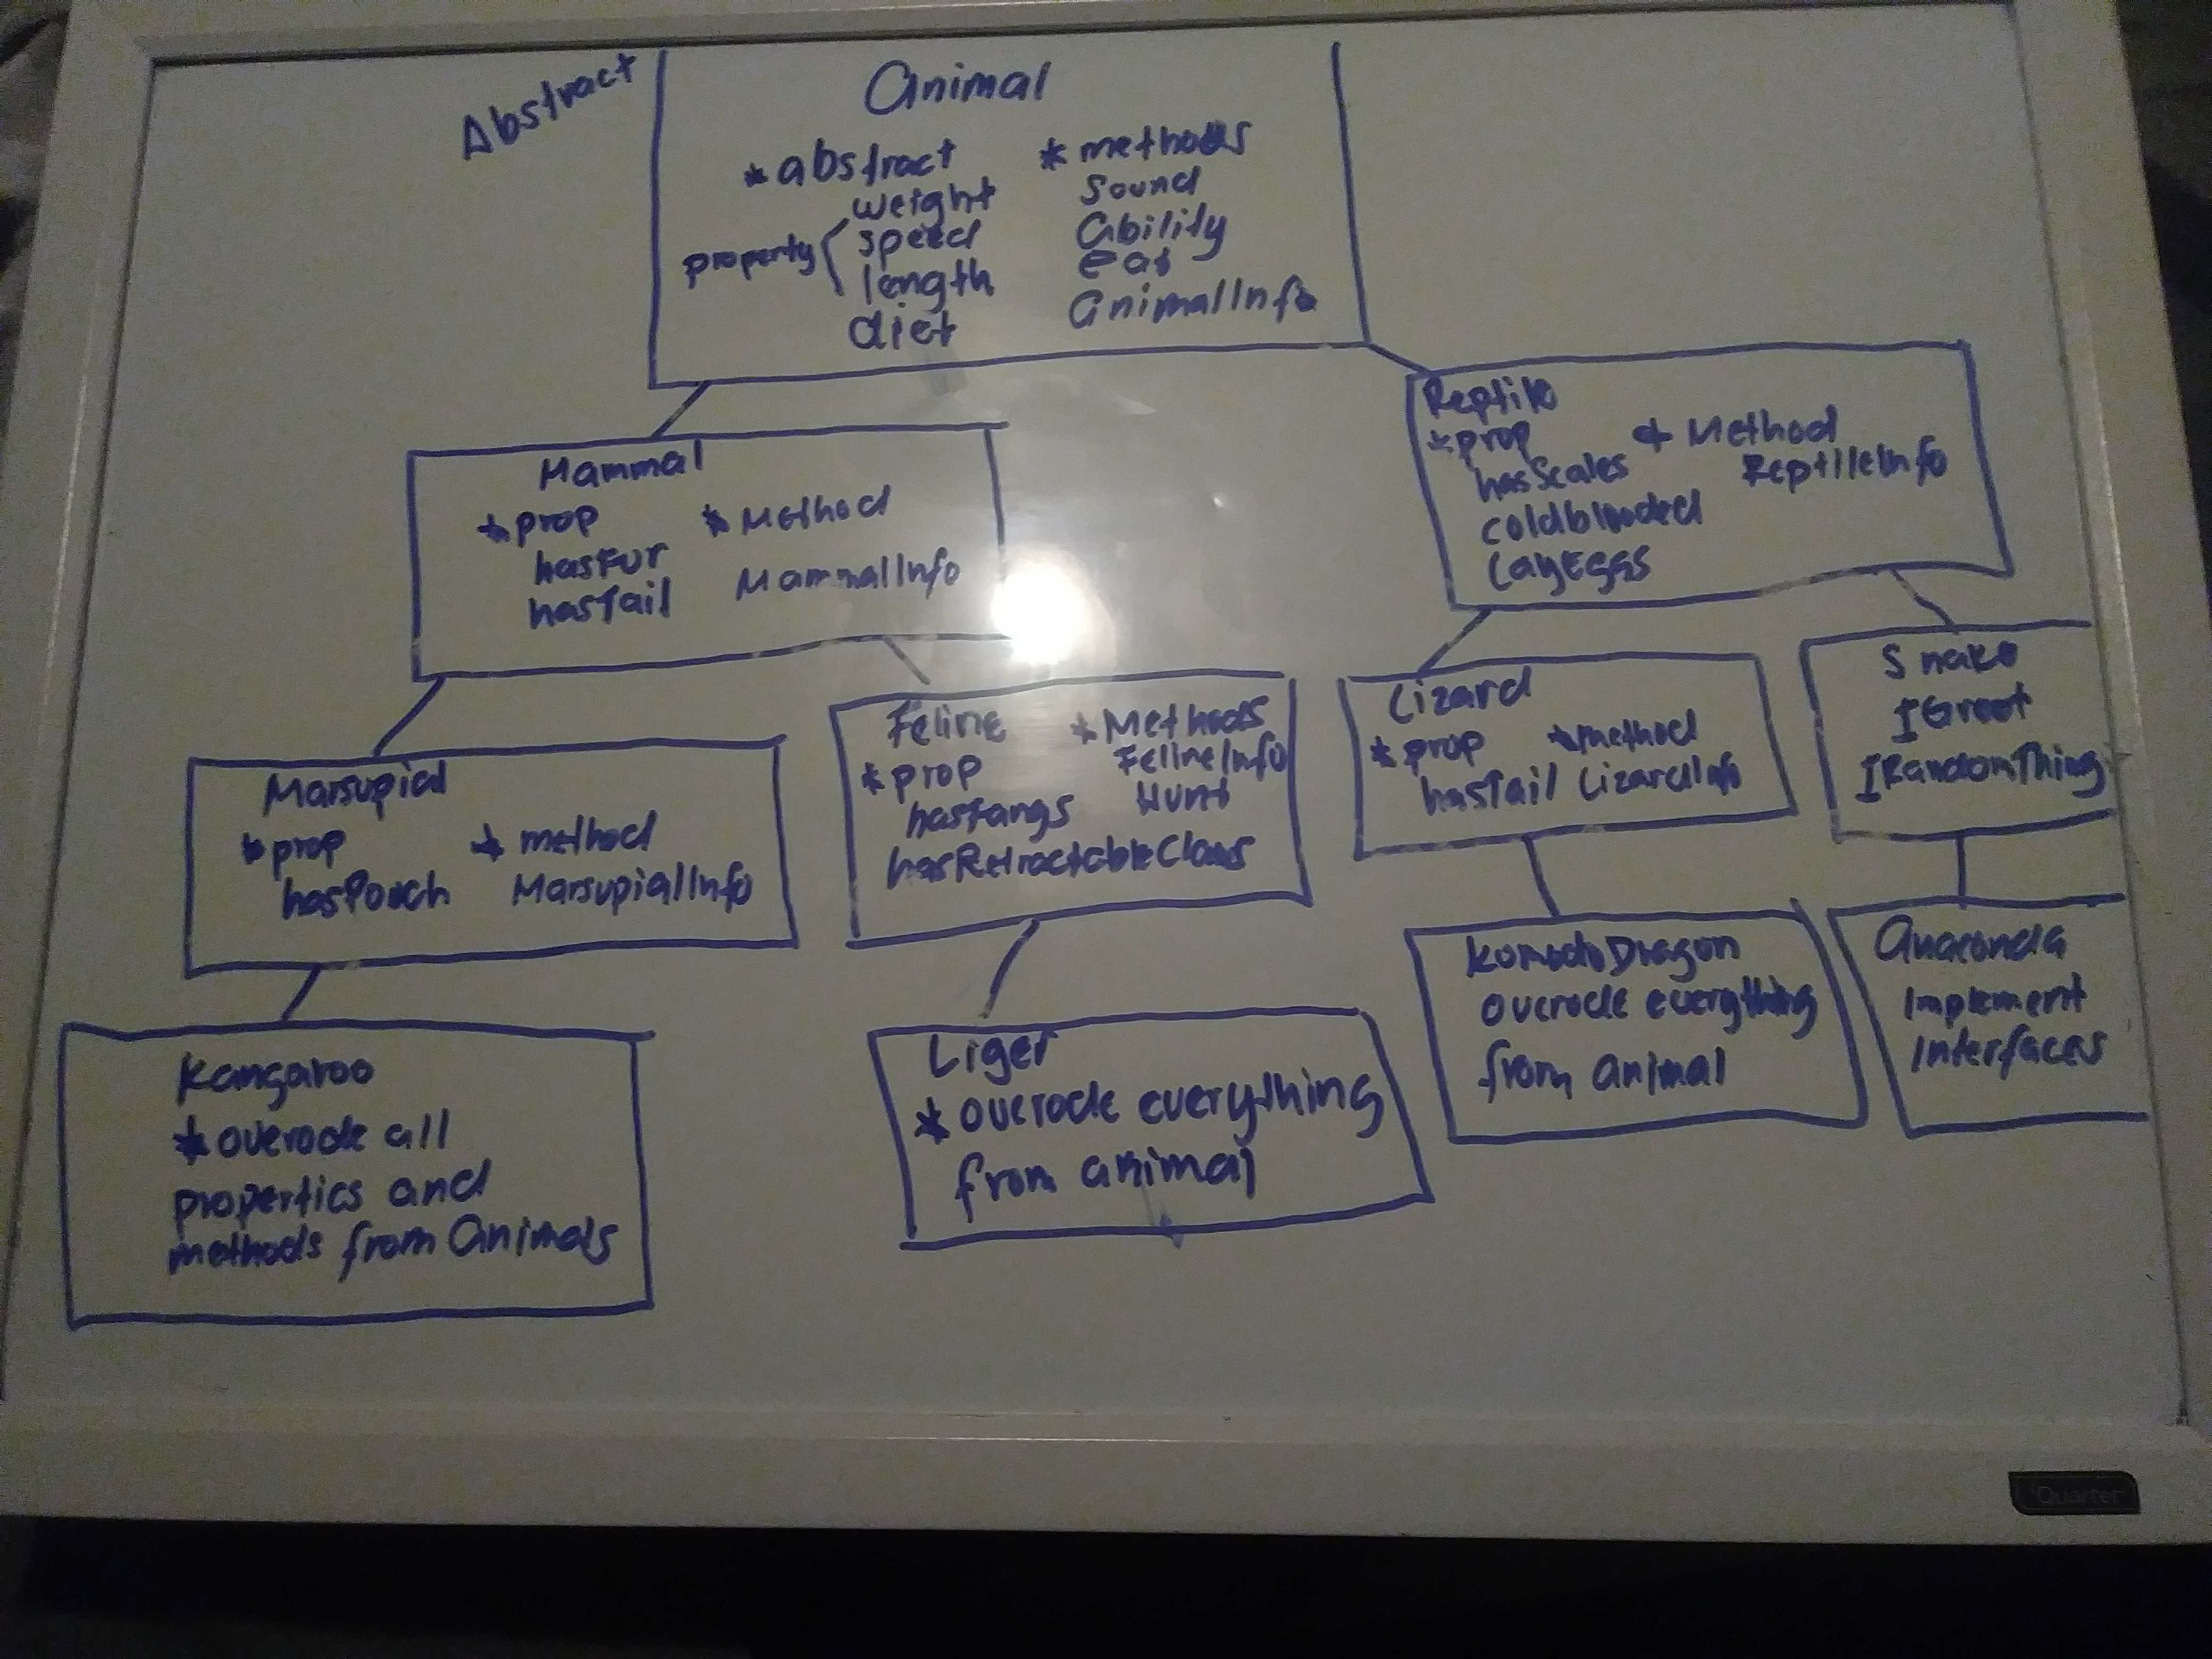 Abstract
Animal
* abstract
weight
property { speed
length
diet
* methods
Sound
Ability
eat
AnimalInfo
Mammal
* prop
hasFur
hasTail
* Method
MammalInfo
Reptile
* prop
hasScales
coldblooded
LayEggs
* Method
ReptileInfo
Marsupial
* prop
hasPouch
* method
MarsupialInfo
Feline
* prop
hasFangs
hasRetractableClaws
* Methods
FelineInfo
Hunt
Lizard
* prop
hasTail
* method
LizardInfo
Snake
IGreet
IRandomThing
Kangaroo
* overode all
properties and
methods from Animals
Liger
* overode everything
from animal
KomodoDragon
overode everything
from animal
Anaconda
Implement
Interfaces
Quarter